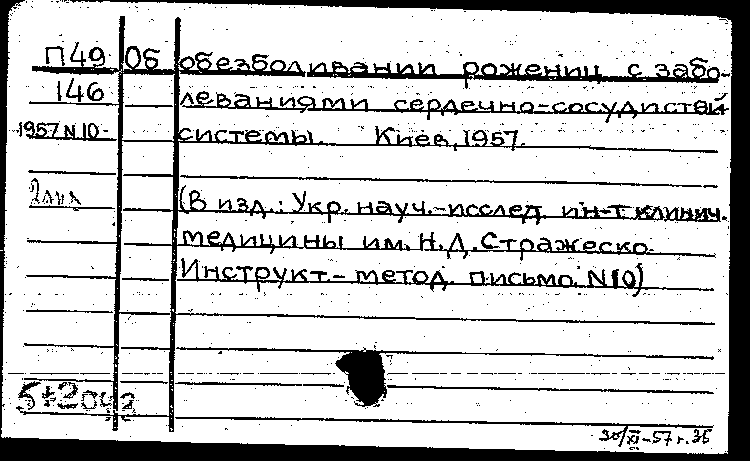 П49 Об обезболивании рожениц с забо-
146 леваниями сердечно-сосудистой
1957 N10- системы. Киев, 1957.
(В изд.: Укр. науч.-исслед. ин-т клинич.
медицины им. Н.Д. Стражеско.
Инструкт.-метод. письмо. N10)
30/XI-57 г. 35